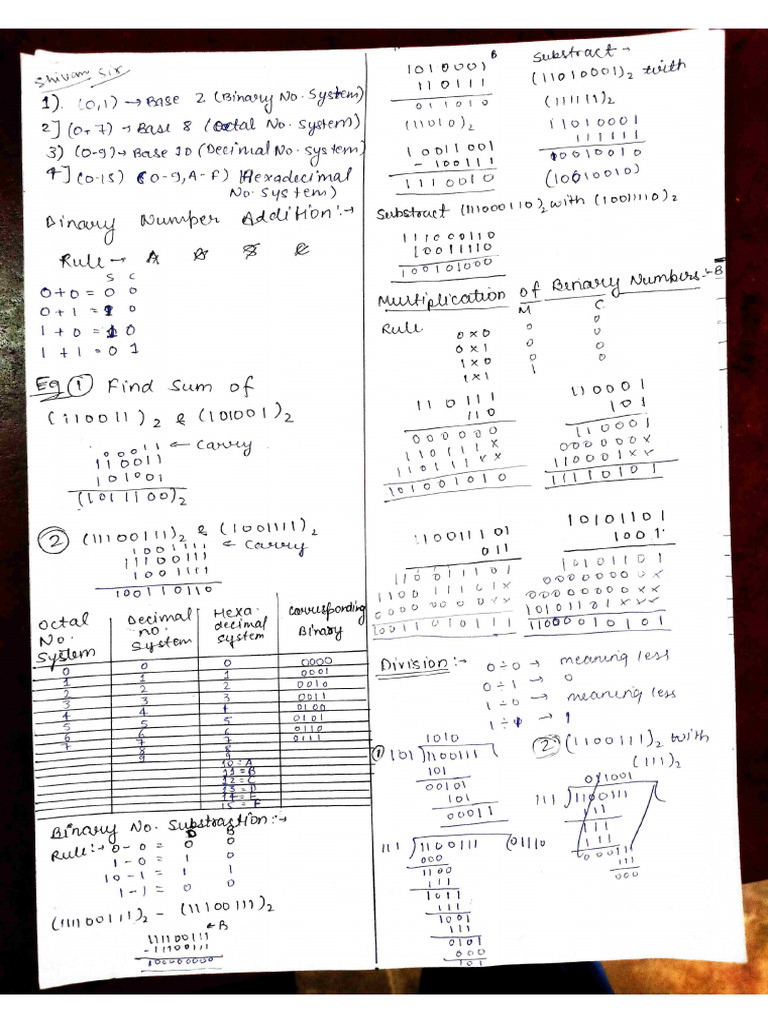 Shivam Sir
1). (0,1) → Base 2 (Binary No. System)
2] (0-7) → Base 8 (Octal No. System)
3) (0-9) → Base 10 (Decimal No. System)
4] (0-15) (0-9, A-F) (Hexadecimal
No. System)
Binary Number Addition:→
Rule →
S C
0+0 = 0 0
0+1 = 1 0
1+0 = 1 0
1+1 = 0 1
Eg ① Find Sum of
(110011)₂ & (101001)₂
00011 ← Carry
110011
101001
(1011100)₂
② (11100111)₂ & (1001111)₂
1001111 ← Carry
11100111
1001111
100110110
Octal No. System | Decimal no. System | Hexa-decimal system | Corresponding Binary
0 | 0 | 0 | 0000
1 | 1 | 1 | 0001
2 | 2 | 2 | 0010
3 | 3 | 3 | 0011
4 | 4 | 4 | 0100
5 | 5 | 5 | 0101
6 | 6 | 6 | 0110
7 | 7 | 7 | 0111
8 | 8
9 | 9
10 = A
11 = B
12 = C
13 = D
14 = E
15 = F
Binary No. Substraction:→
D B
Rule:→ 0-0 = 0 0
1-0 = 1 0
10-1 = 1 1
1-1 = 0 0
(111100111)₂ - (11100111)₂
← B
111100111
-11100111
100000000
B
1010001
110111
011010
(11010)₂
10011001
- 100111
1110010
Substract →
(11010001)₂ with
(111111)₂
11010001
111111
10010010
(10010010)
Substract (111000110)₂ with (10011110)₂
111000110
10011110
100101000
Multiplication of Binary Numbers:-B
Rule
M C
0×0 0 0
0×1 0 0
1×0 0 0
1×1 1 0
110111
110
000000
110111×
110111××
101001010
110001
101
110001
000000××
110001××
11110101
110011101
011
110011101
110011101×
000000000××
10011010111
10101101
1001
10101101
00000000×
00000000××
10101101×××
11000010101
Division:→ 0÷0 → meaning less
0÷1 → 0
1÷0 → meaning less
1÷1 → 1
①
1010
101 1100111
101
00101
101
00011
② (1100111)₂ with
(111)₂
011001
111 1100111
111
111
111
00011
111
000
111 1100111 (01110
000
1100
111
1011
111
1001
111
0101
000
101